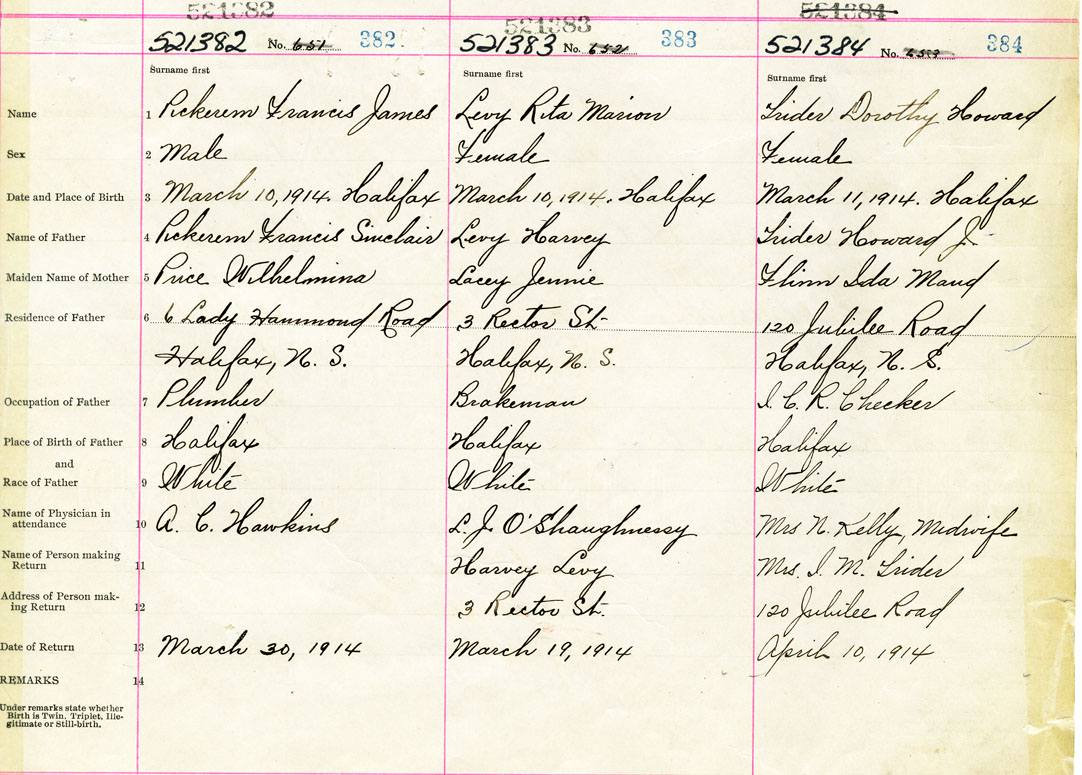 521382 521383 521384
521382 No. 651 382. 521383 No. 652 383 521384 No. 384
Surname first Surname first Surname first
Name 1 Pickerem Francis James Levy Rita Marion Grider Dorothy Howard
Sex 2 Male Female Female
Date and Place of Birth 3 March 10, 1914. Halifax March 10, 1914. Halifax March 11, 1914. Halifax
Name of Father 4 Pickerem Francis Sinclair Levy Harvey Grider Howard J.
Maiden Name of Mother 5 Price Wilhelmina Lacey Jennie Flinn Ida Maud
Residence of Father 6 6 Lady Hammond Road 3 Rector St. 120 Jubilee Road
Halifax, N. S. Halifax, N. S. Halifax, N. S.
Occupation of Father 7 Plumber Brakeman I. C. R. Checker
Place of Birth of Father 8 Halifax Halifax Halifax
and
Race of Father 9 White White White
Name of Physician in
attendance 10 A. C. Hawkins L. J. O'Shaughnessy Mrs N. Kelly, Midwife
Name of Person making
Return 11 Harvey Levy Mrs. I. M. Grider
Address of Person mak-
ing Return 12 3 Rector St. 120 Jubilee Road
Date of Return 13 March 30, 1914 March 19, 1914 April 10, 1914
REMARKS 14
Under remarks state whether
Birth is Twin, Triplet, Ille-
gitimate or Still-birth.